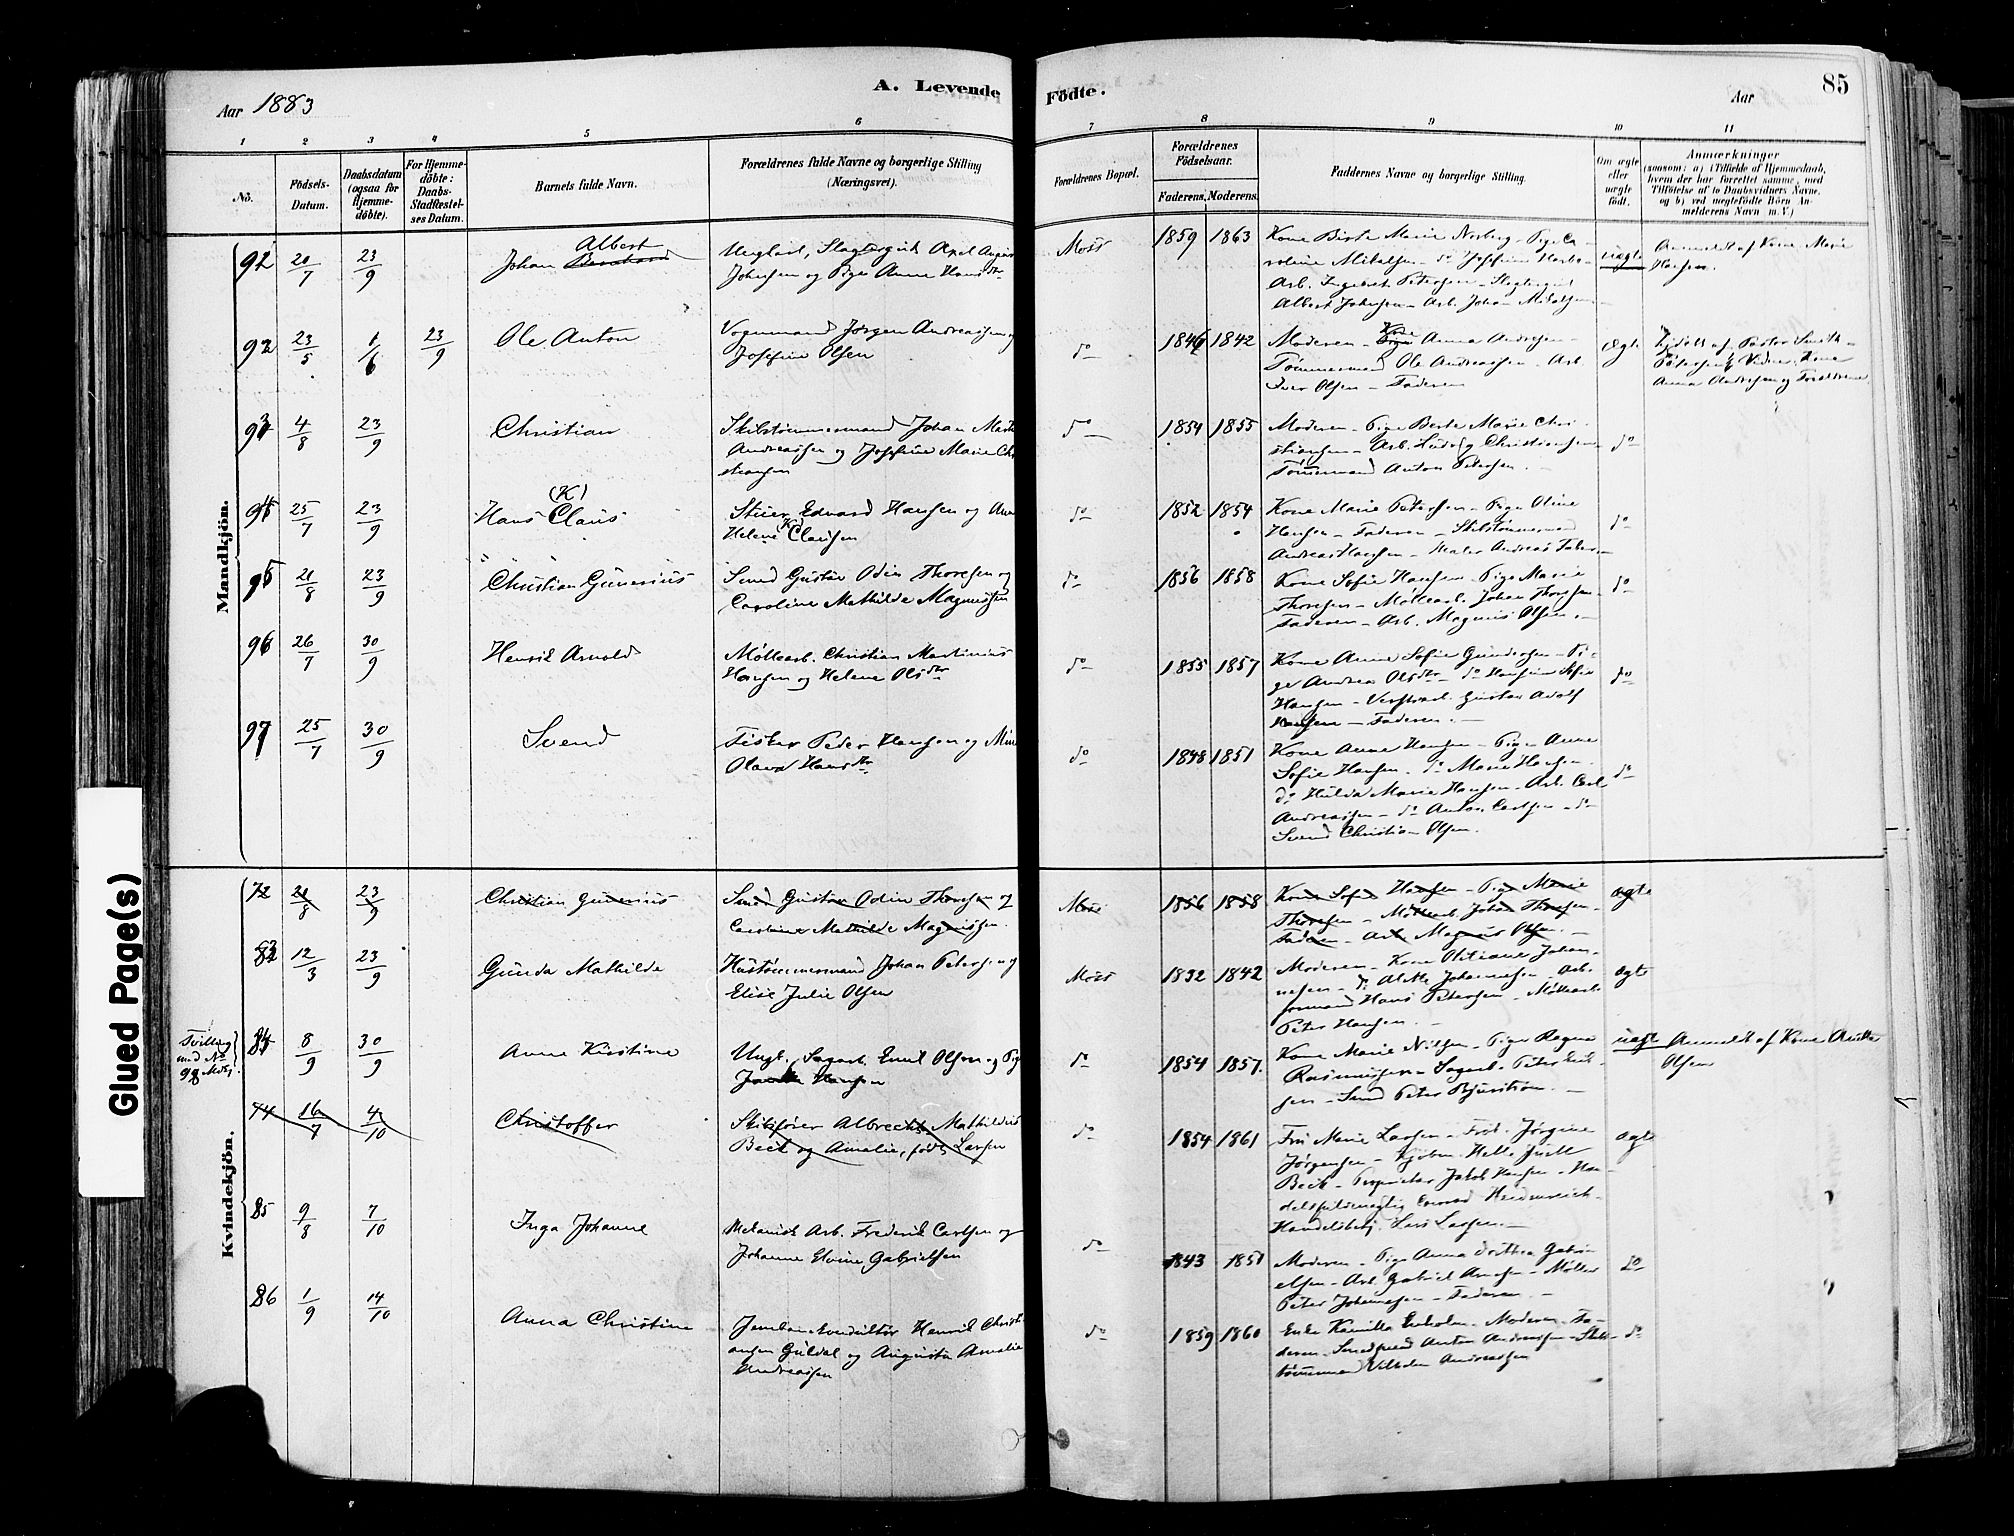 Aar 1883
A. Levende
Födte.
Aar
85
1
2
3
4
5
6
7
8
9
10
11
No.
Födsels-
Datum.
Daabsdatum
(ogsaa for
Hjemme-
döbte).
For Hjemme-
döbte:
Daabs-
Stadfæstel-
ses Datum.
Barnets fulde Navn.
Forældrenes fulde Navne og borgerlige Stilling
(Næringsvei).
Forældrenes Bopæl.
Forældrenes
Födselsaar.
Faderens.
Moderens.
Faddernes Navne og borgerlige Stilling.
Om ægte
eller
uægte
födt.
Anmærkninger
(saasom: a) i Tilfælde af Hjemmedaab,
hvem der har forrettet samme, med
Tilföielse af to Daabsvidners Navne,
og b) ved uægtefödte Börn An-
melderens Navn m. V.)
Mandkjön.
20/7
23/9
Albert
Johan Bernhard
Johansen og Pige Anne Hansdtr
Moss
1859 1863
Kone Birte Marie Norberg - Pige Ca-
roline Mikalsen - do Josefine
Arb. Ingebret Petersen - Slagtersvd
Albert Johansen - Arb. Johan Mikalsen
uægte
Anmeldt af Kone Marie
Hansen.
92
23/5
1/6
23/9
Ole Anton
Vognmand Jørgen Andreassen og
Josefine Olsen
do
1846 1842
Moderen - Kone Anna Andresen -
Tømmermand Ole Andreassen - Arb.
Iver Olsen - Faderen
ægte
Anna Andresen og Forældrene
93
4/8
23/9
Christian
Skibstømmermand Johan
Andreassen og Josefine Marie Chri
stiansen
do
1854 1855
Moderen - Pige Berte Marie Chri-
stiansen - Arb. Ludvig Christiansen
Tømmermand Anton Petersen. -
do
25/7
23/9
(K)
Hans Claus
Stuer Edvard Hansen og
Helene Clausen
do
1852 1854
Kone Marie Petersen - Pige Oline
Hansen - Faderen - Skibstømmermand
Andreas Hansen - Maler Andreas
do
95
21/8
23/9
Christian Gunerius
Smed Gustav Odin Thoresen og
Caroline Mathilde Magnussen
do
1856 1858
Kone Sofie Hansen - Pige Marie
Thoresen - Møllearb. Johan Thoresen -
Faderen - Arb. Magnus Olsen. -
do
96
26/7
30/9
Henrik Arnold
Møllearb. Christian Martinius
Hansen og Helene Olsdtr
do
1855 1857
Kone Anne Sofie Gundersen - Pi-
ge Andrea Olsdtr - do Hansine Sofie
Hansen - Gustav Adolf
Hansen - Faderen. -
do
97
25/7
30/9
Svend
Fisker Peder Hansen og
Olava Hansdtr
do
1848 1851
Kone Anne Hansen - Pige Anne
Sofie Hansen. do Marie Hansen.
do Hulda Marie Hansen - Arb. Carl
Andreassen - do Anton Carlsen - do
Svend Christian Olsen.
do
Kvindekjön.
72
21/8
23/9
Christian Gunerius
Smed Gustav Odin Thoresen og
Caroline Mathilde Magnussen.
Moss
1856 1858
Kone Sofie Hansen - Pige Marie
Thoresen - Møllearb. Johan Thoresen -
Faderen - Arb. Magnus Olsen. -
ægte
12/3
23/9
Gunda Mathilde
Hustømmermand Johan Petersen og
Elise Julie Olsen
Moss
1832 1842
Moderen - Kone Johan-
nesen - do Alette Johannesen - Arb.
formand Hans Petersen - Møllearb.
Peter Hansen. -
ægte
Tvilling
med No
98
8/9
30/9
Anne Kirstine
Ungk. Sagarb. Emil Olsen og Pig
Hansen
do
1854 1857.
Kone Marie Nilsen - Pige Regine
Rasmussen - Sagarb. Peter
sen - Smed Peter Bjurstrøm. -
uægte
Anmeldt af Kone
Olsen
74
16/7
4/10
Christoffer
Skibsfører Albrecht Mathildus
Beck og Amalie, født Larsen
do
1854 1861
Fru Marie Larsen - Frøk. Jørgine
Jørgensen - Kjøbm.
Beck - Proprietær Jakob Hansen - Han-
delsfuldmægtig Conrad Heidenreich -
Handelsbetj. Lars Larsen. -
ægte
85
9/8
7/10
Inga Johanne
Mekanisk Arb. Frederik Carlsen og
Johanne Elvine Gabrielsen
do
1843 1851
Moderen - Pige Anna Dorthea Gabri-
elsen - Arb. Gabriel - Møller
Peter Johannesen - Faderen. -
do
86
1/9
14/10
Anna Christine
Henrik Christi
ansen Guldal og Augusta Amalie
Andreassen
do
1859 1860
Enke Kamilla - Moderen - Fa-
deren - Smedsvend Anton Andreassen - Skibs-
tømmermand Vilhelm Andreassen
do
Glued Page(s)